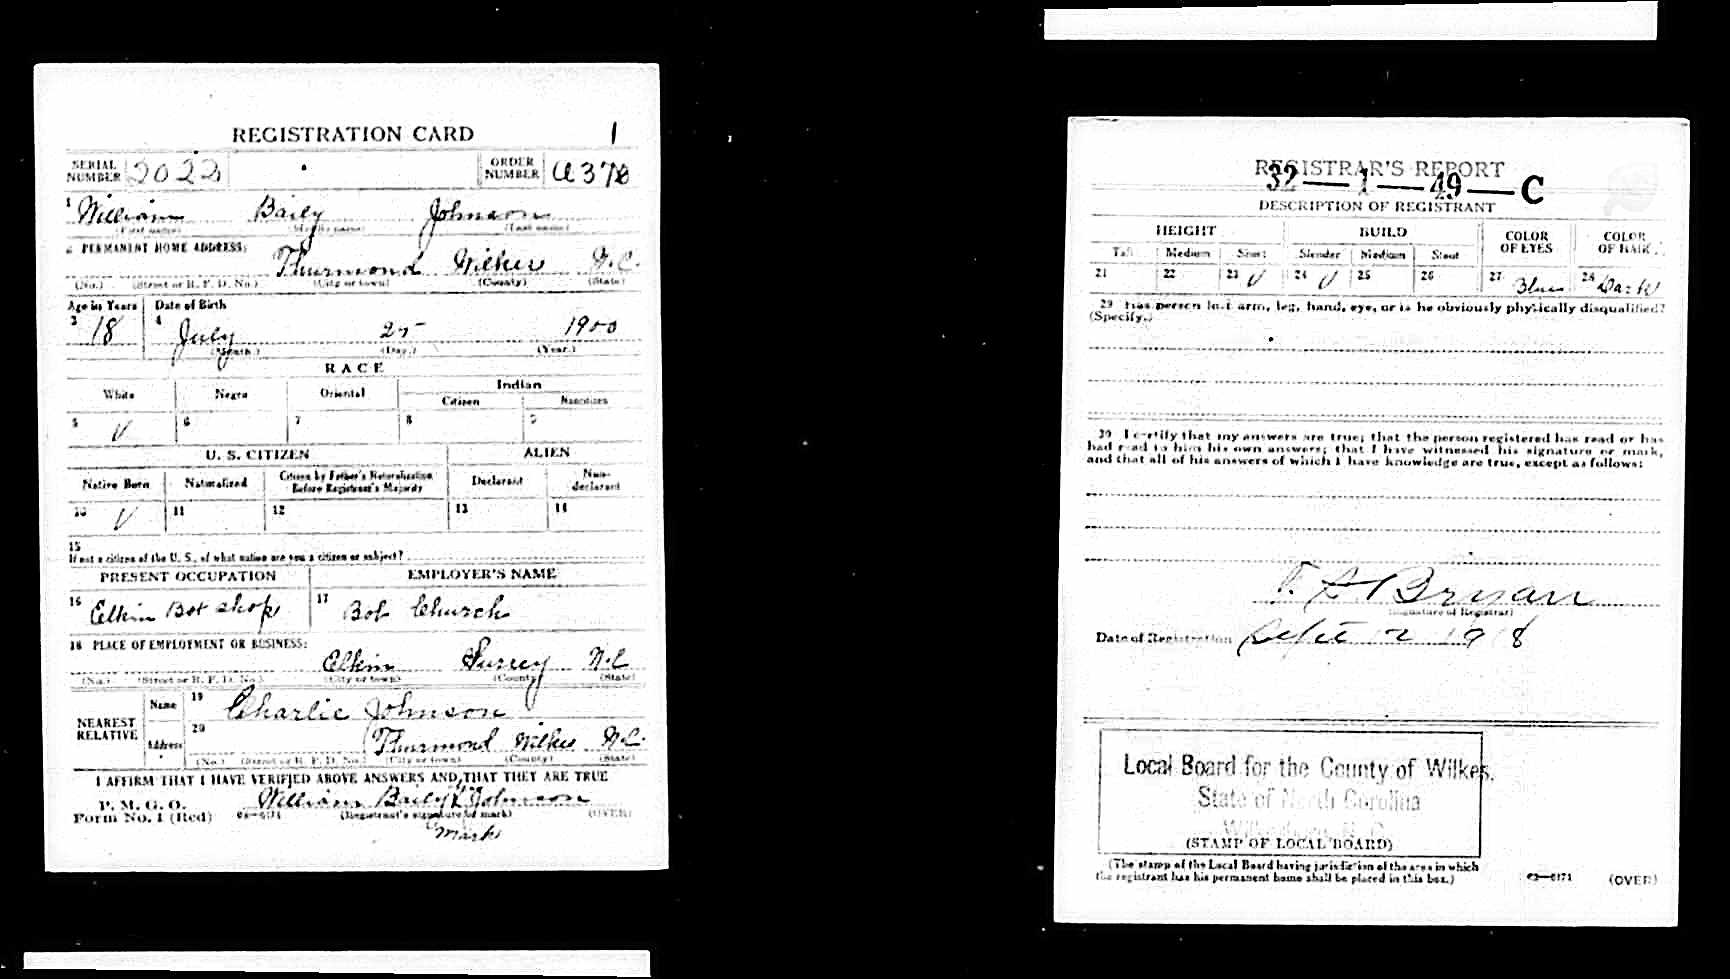 REGISTRATION CARD 1
SERIAL NUMBER 2022 ORDER NUMBER A378
1 William Baily Johnson
(First name) (Middle name) (Last name)
2 PERMANENT HOME ADDRESS:
Thurmond Wilkes N.C.
(No.) (Street or R. F. D. No.) (City or town) (County) (State)
Age in Years Date of Birth
3 18 4 July 25 1900
(Month.) (Day.) (Year.)
RACE
White Negro Oriental Indian
Citizen Noncitizen
5 √ 6 7 8 9
U. S. CITIZEN ALIEN
Native Born Naturalized Citizen by Father's Naturalization Before Registrant's Majority Declarant Non-declarant
10 √ 11 12 13 14
15
If not a citizen of the U. S., of what nation are you a citizen or subject?
PRESENT OCCUPATION EMPLOYER'S NAME
16 Elkin Bot shop 17 Bob Church
18 PLACE OF EMPLOYMENT OR BUSINESS:
Elkin Surrey N.C
(No.) (Street or R. F. D. No.) (City or town) (County) (State)
NEAREST RELATIVE Name 19 Charlie Johnson
Address 20 Thurmond Wilkes N.C.
(No.) (Street or R. F. D. No.) (City or town) (County) (State)
I AFFIRM THAT I HAVE VERIFIED ABOVE ANSWERS AND THAT THEY ARE TRUE
P. M. G. O.
Form No. 1 (Red) 03—6171 William Baily X Johnson
(Registrant's signature or mark) (OVER)
mark
REGISTRAR'S REPORT
32—1—49—C
DESCRIPTION OF REGISTRANT
HEIGHT BUILD COLOR OF EYES COLOR OF HAIR
Tall Medium Short Slender Medium Stout
21 22 23 √ 24 √ 25 26 27 Blue 28 Dark
29 Has person lost arm, leg, hand, eye, or is he obviously physically disqualified?
(Specify.)
30 I certify that my answers are true; that the person registered has read or has
had read to him his own answers; that I have witnessed his signature or mark,
and that all of his answers of which I have knowledge are true, except as follows:
Bryan
(Signature of Registrar)
Date of Registration Sept 12 1918
Local Board for the County of Wilkes,
State of North Carolina
(STAMP OF LOCAL BOARD)
(The stamp of the Local Board having jurisdiction of the area in which
the registrant has his permanent home shall be placed in this box.)
03—6171 (OVER)